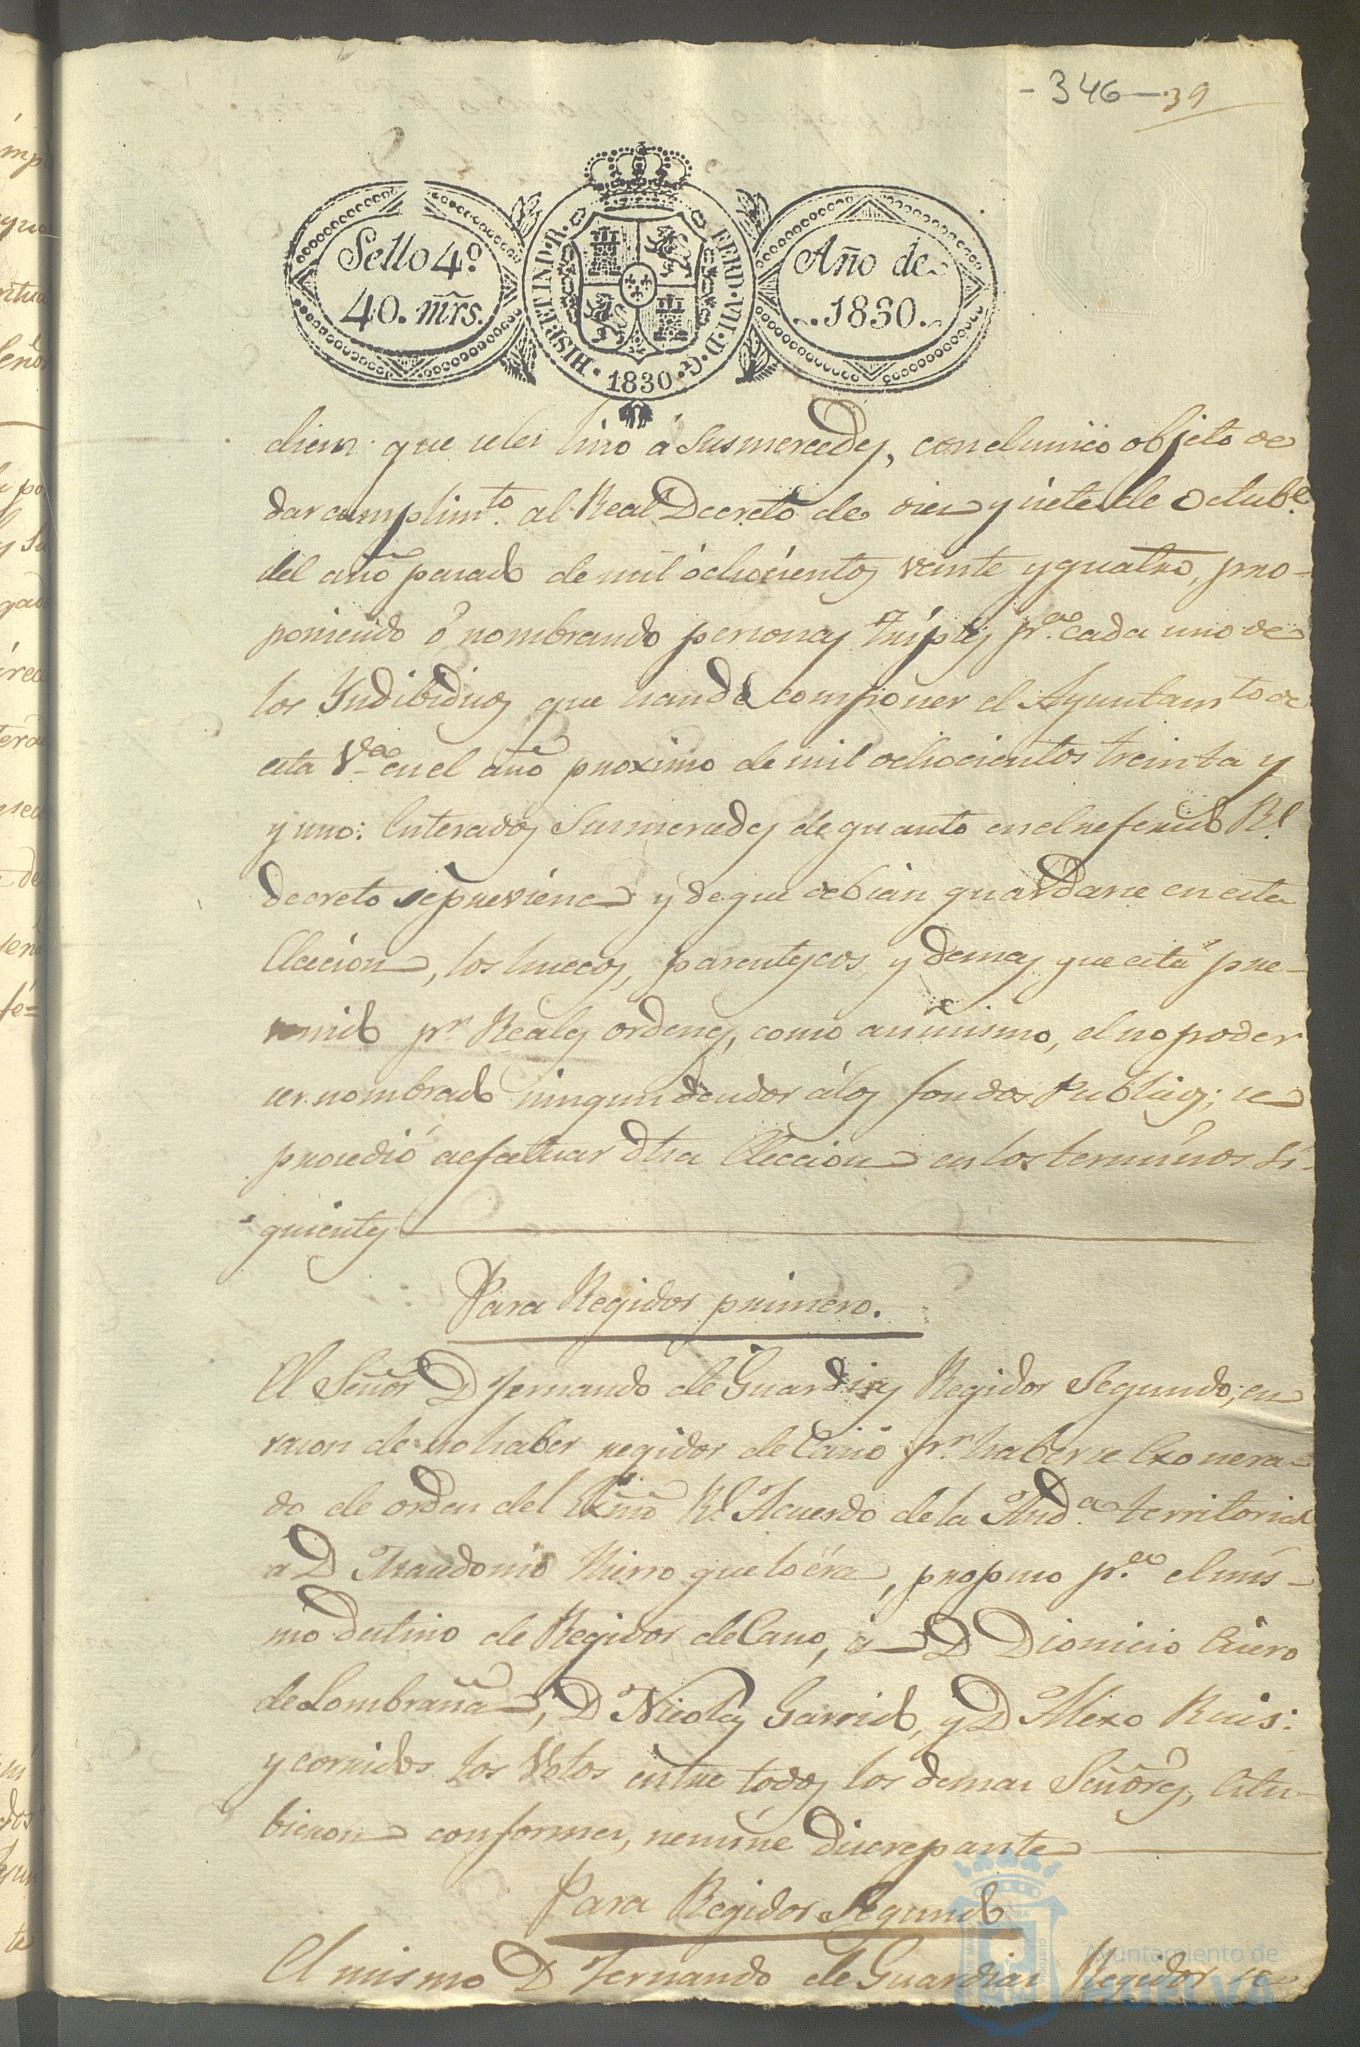 - 346 - 39
Sello 4º
40. mrs.
HISP. ET IND. R. FERD. VII. D. G.
1830
Año de
1830.
diem que seles hiso á Susmercedes, con el unico objeto de
dar cumplimto. al Real Decreto de dies y siete de Octube.
del año pasado de mil óchocientos veinte y quatro, pro-
poniendo ó nombrando personas triples pra. cada uno de
los Yndibiduos que hande componer el Ayuntamto. de
esta Va. en el año proximo de mil ochocientos treinta y
y uno: Enterados Susmercedes de quanto en el referido Rl.
decreto se previene y de que debian guardarse en esta
Eleccion, los huecos, parentescos y demas que está pre-
venido pr. Reales ordenes, como asimismo, el no poder
ser nombrado ningun deudor álos fondos Publicos; se
prosedió aefectuar dha Eleccion en los terminos si-
guientes
Para Regidor primero.
El Señor D Fernando de Guardias Regidor Segundo, en
rason de no haber regidor de Cano pr. haberse Exonera-
do de orden del Exmo Rl. Acuerdo de la Auda. territorial
a D que lo éra, propuso pra. el mis-
mo destino de Regidor de Cano, á D Dionicio Quero
de Lombraña, D Nicolas Garrido, y D Alexo Ruis:
y corridos los Votos entre todos los demas Señores, Estu-
bieron conformes, nemine discrepante
Para Regidor Segundo
El mismo D Fernando de Guardias Regidor se
Ayuntamiento de
HUELVA